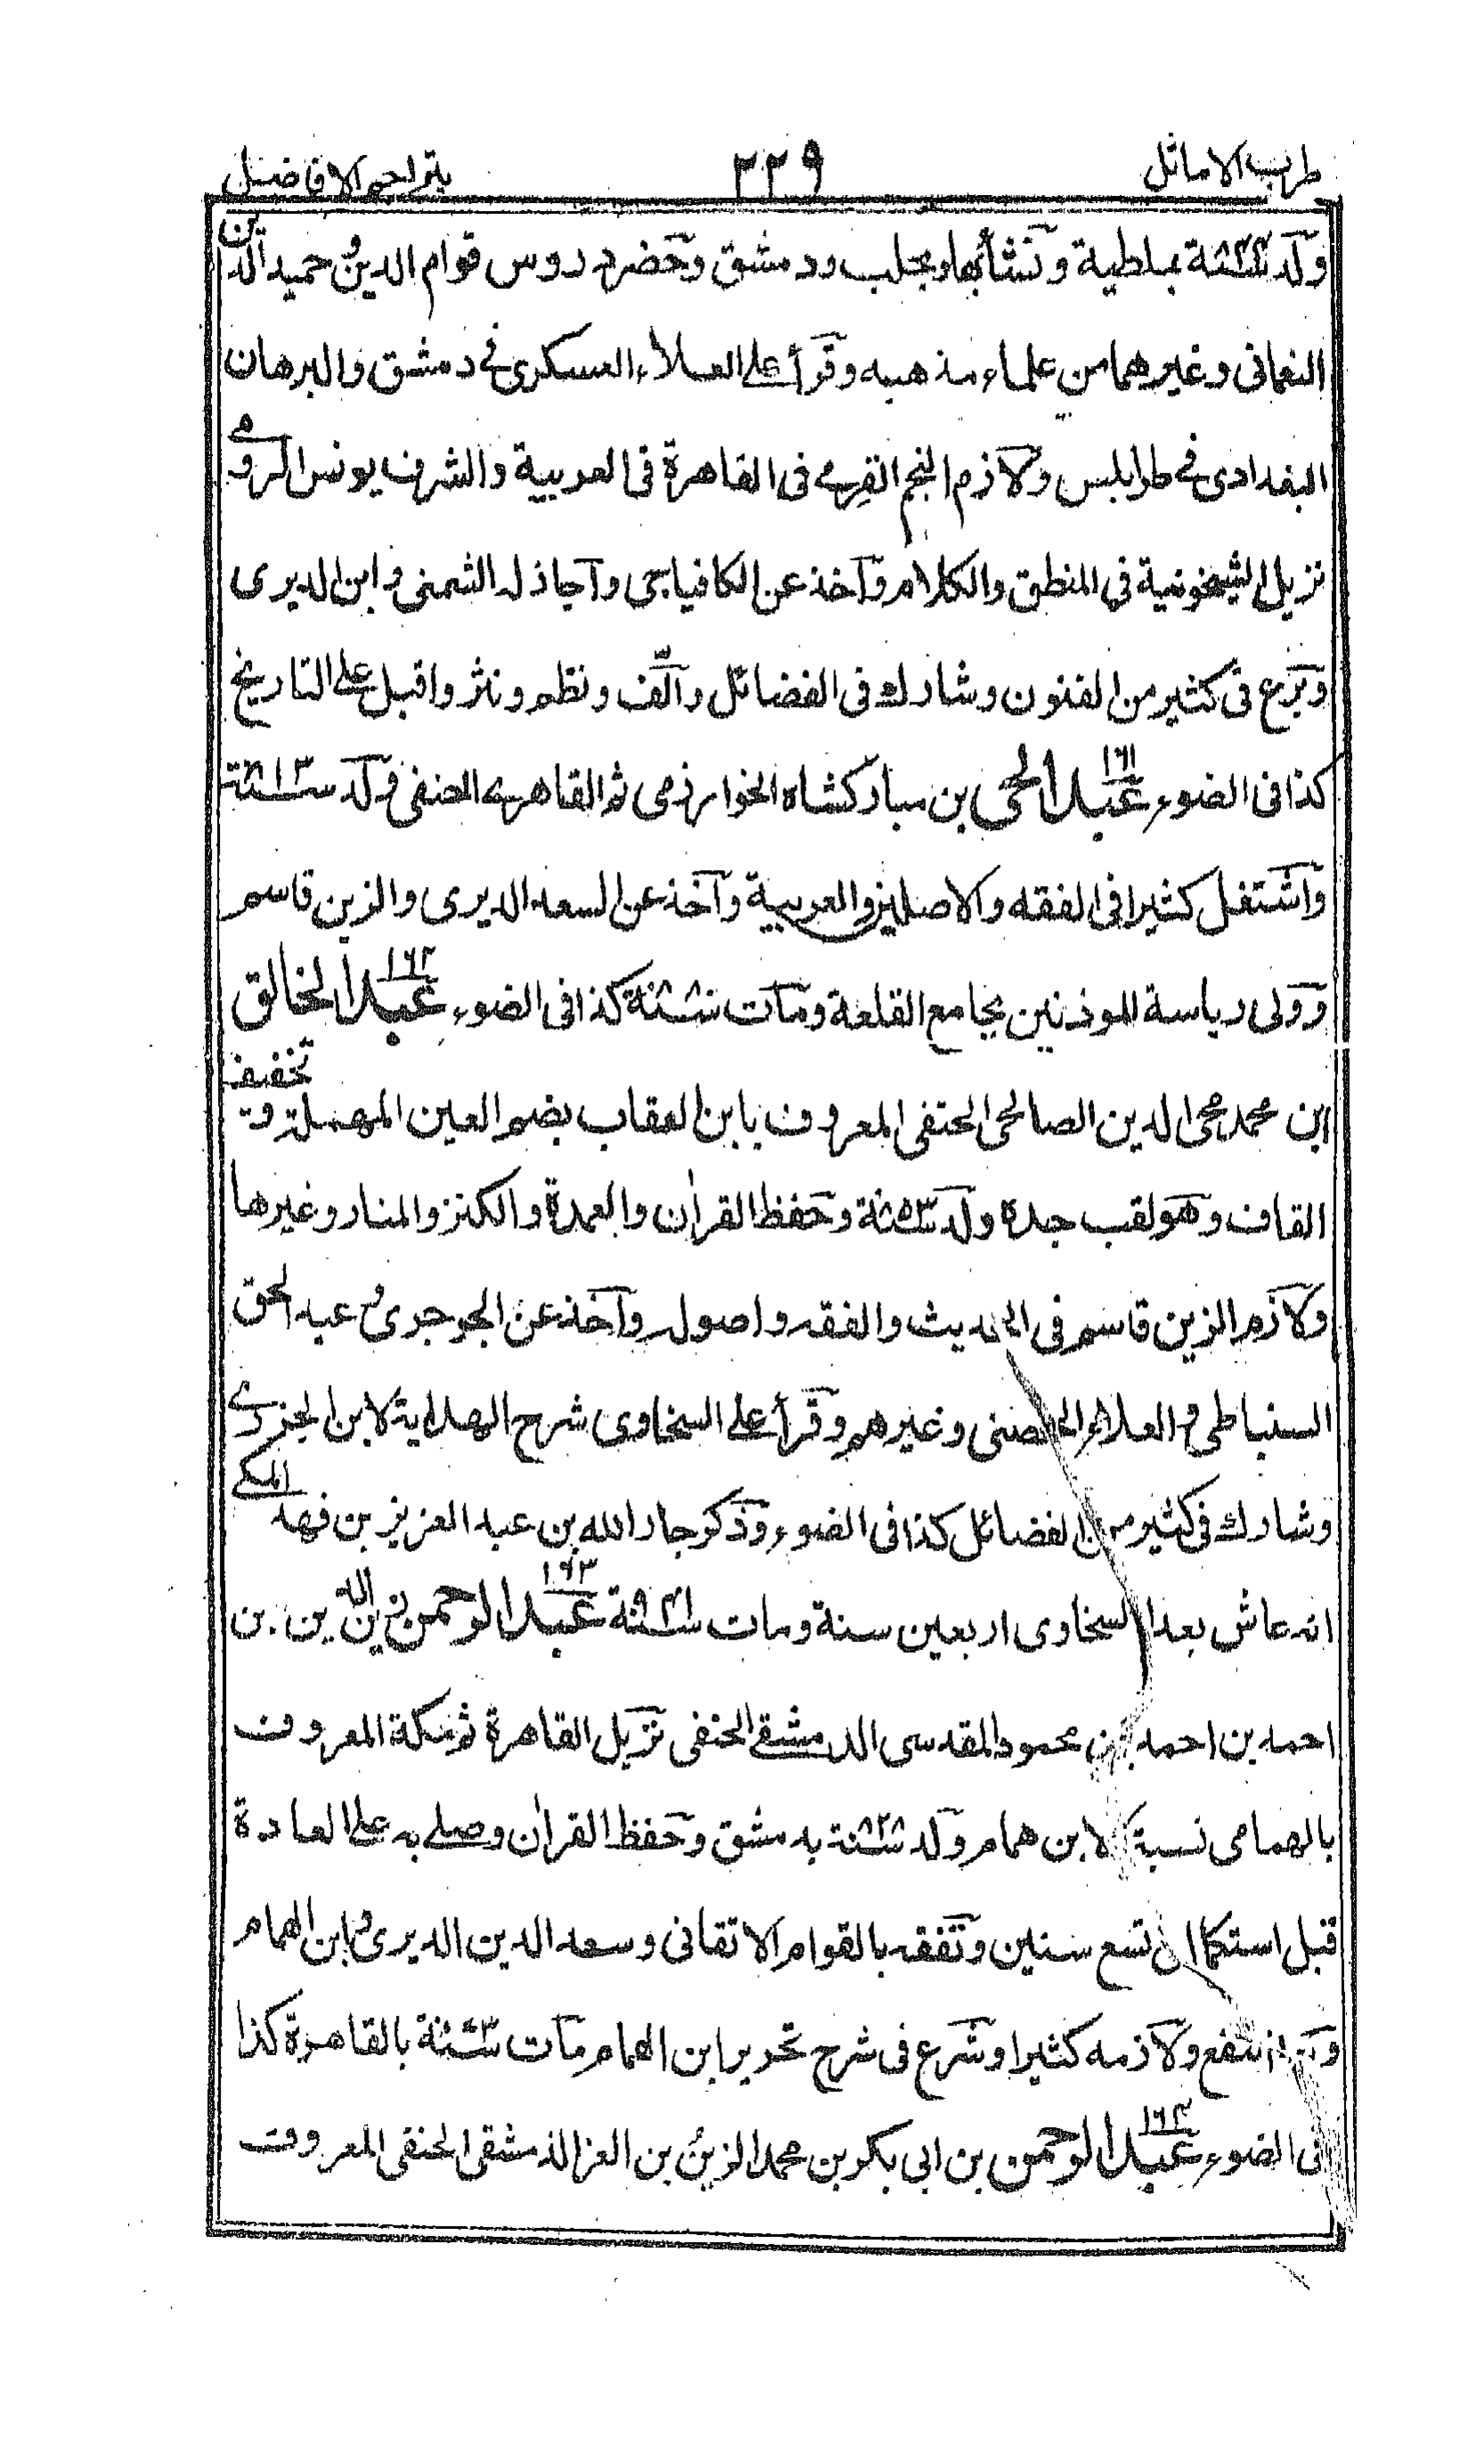 طرب الاماثل ٢٢٩ بتراجم الافاضل
ولد سنة بملطية ونشأ بها وبحلب ودمشق وحضر دروس قوام الدين وحميد الدين
النعمانى وغيرهما من علماء مذهبه وقرأ على العلاء العسكرى فى دمشق والبرهان
البغدادى فى طرابلس ولازم النجم القرمى فى القاهرة فى العربية والشرف يونس الرومى
نزيل الشيخونية فى المنطق والكلام وآخذ عن الكافياجى وآجاز له الشمنى وابن الديرى
وبرع فى كثير من الفنون وشارك فى الفضائل وآلّف ونظم ونثر واقبل على التاريخ
كذا فى الضوء ١٦١ عبد الحى بن مباركشاه الخوارزمى ثم القاهرى الحنفى ولد سنة ٨١٣
واشتغل كثيرا فى الفقه والاصلين والعربية وآخذ عن السعد الديرى والزين قاسم
وولى رياسة الموذنين بجامع القلعة ومات سنة كذا فى الضوء ١٦٢ عبد الخالق
ابن محمد محى الدين الصالحى الحنفى المعروف بابن العقاب بضم العين المهملة وتخفيف
القاف وهو لقب جده ولد سنة ٨٥٣ وحفظ القرآن والعمدة والكنز والمنار وغيرها
ولازم الزين قاسم فى الحديث والفقه واصوله وآخذ عن الجوجرى وعبد الحق
السنباطى والعلاء الحصنى وغيرهم وقرأ على السخاوى شرح الهداية لابن الجزرى
وشارك فى كثير من الفضائل كذا فى الضوء وذكر جار الله بن عبد العزيز بن فهد المكى
انه عاش بعد السخاوى اربعين سنة ومات سنة ١٦٣ عبد الرحمن زين الدين بن
احمد بن احمد بن محمود المقدسى الدمشقى الحنفى نزيل القاهرة ثم مكة المعروف
بالهمامى نسبة لابن همام ولد سنة ٨٢٨ بدمشق وحفظ القرآن وصلى به على العادة
قبل استكمال تسع سنين وتفقه بالقوام الاتقانى وسعد الدين الديرى وابن الهمام
وبه انتفع ولازمه كثيرا وشرع فى شرح تحرير ابن الهمام مات سنة بالقاهرة كذا
فى الضوء ١٦٤ عبد الرحمن بن ابى بكر بن محمد الزين بن العز الدمشقى الحنفى المعروف